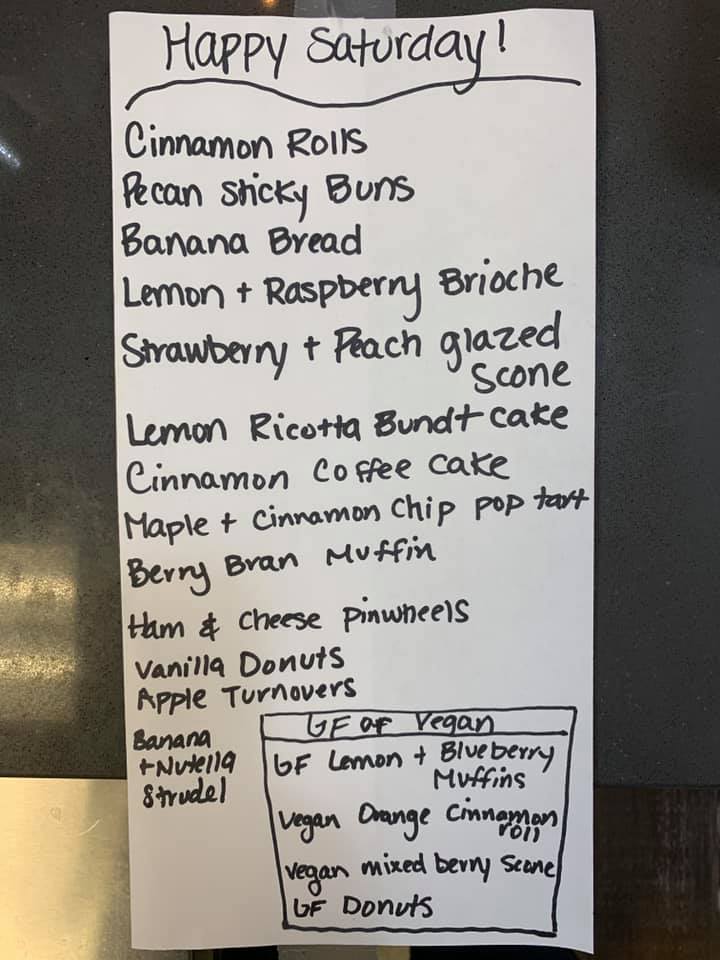 Happy Saturday!
Cinnamon Rolls
Pecan Sticky Buns
Banana Bread
Lemon + Raspberry Brioche
Strawberry + Peach glazed
Scone
Lemon Ricotta Bundt cake
Cinnamon Coffee Cake
Maple + Cinnamon Chip pop tart
Berry Bran Muffin
Ham & Cheese pinwheels
Vanilla Donuts
Apple Turnovers
Banana
+ Nutella
Strudel
GF or Vegan
GF Lemon + Blueberry
Muffins
Vegan Orange Cinnamon
roll
vegan mixed berry Scone
GF Donuts